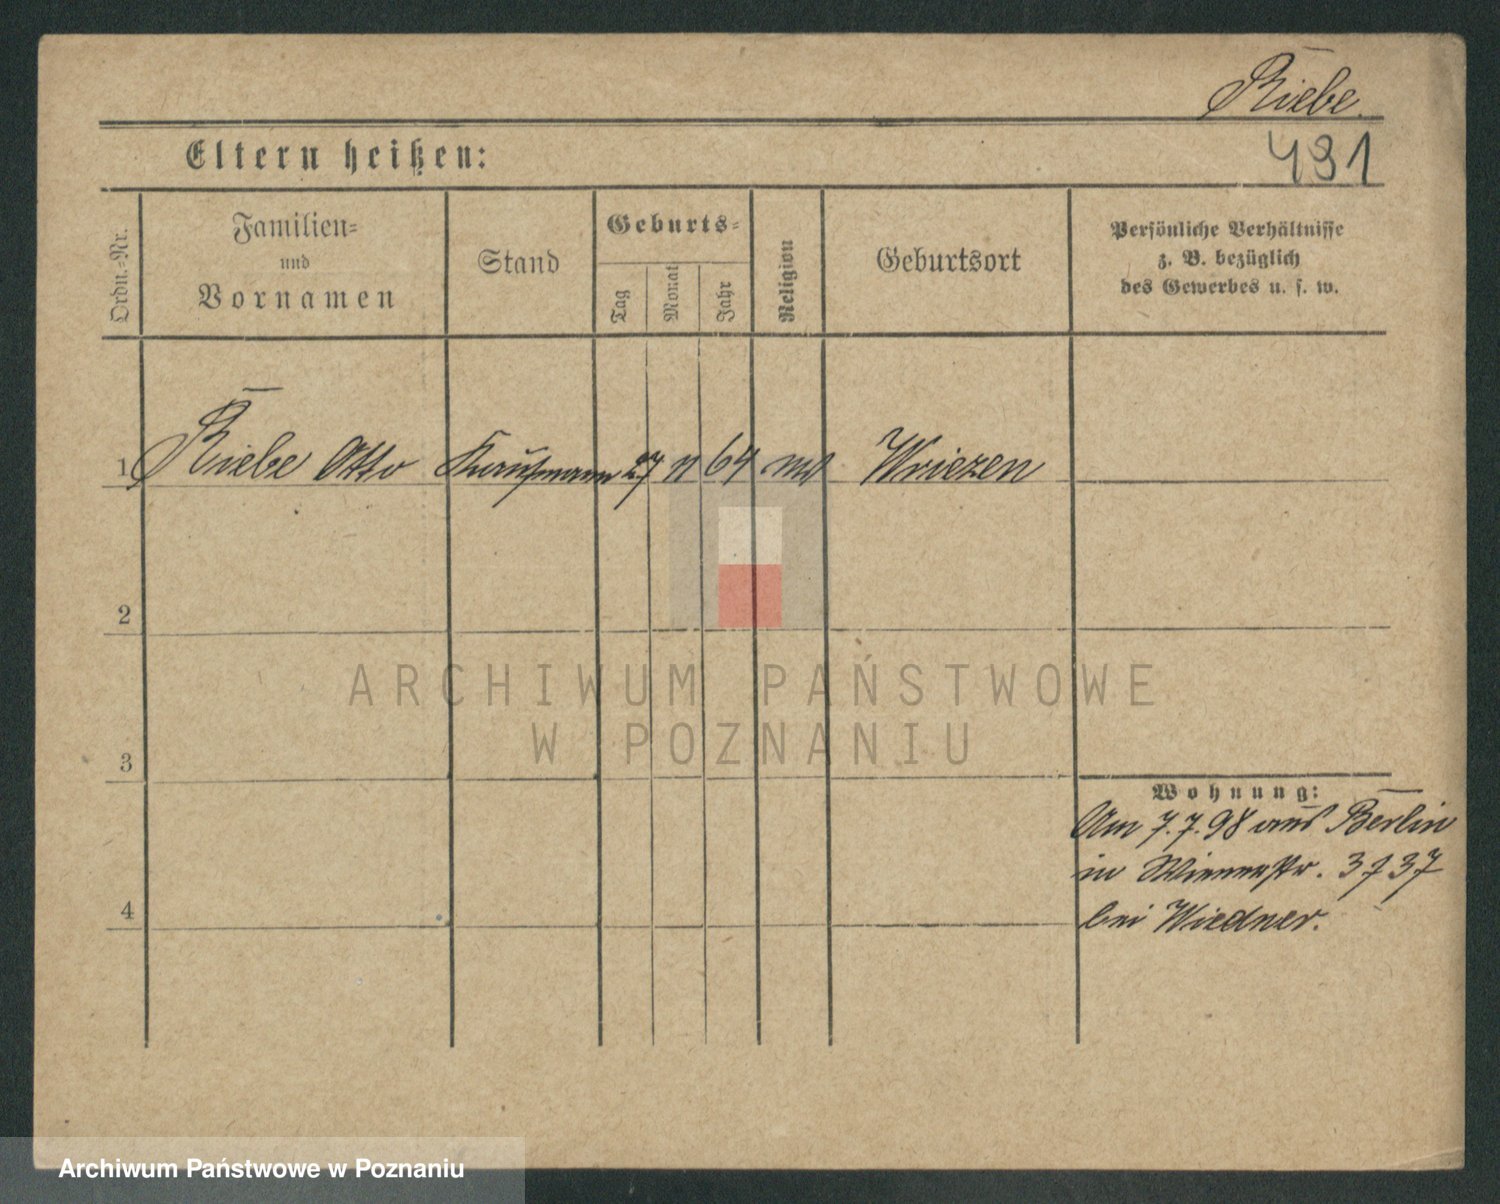 Riebe.
Eltern heißen:
491
Ordn.-Nr.
Familien-
und
Vornamen
Stand
Geburts-
Tag
Monat
Jahr
Religion
Geburtsort
Persönliche Verhältnisse
z. B. bezüglich
des Gewerbes u. s. w.
1 Riebe Otto Kaufmann 27 64 Wriezen
2
3
4
Wohnung:
Am 7.7.98 aus Berlin
in Wienerstr.
bei Wiedner.
ARCHIWUM PAŃSTWOWE
W POZNANIU
Archiwum Państwowe w Poznaniu